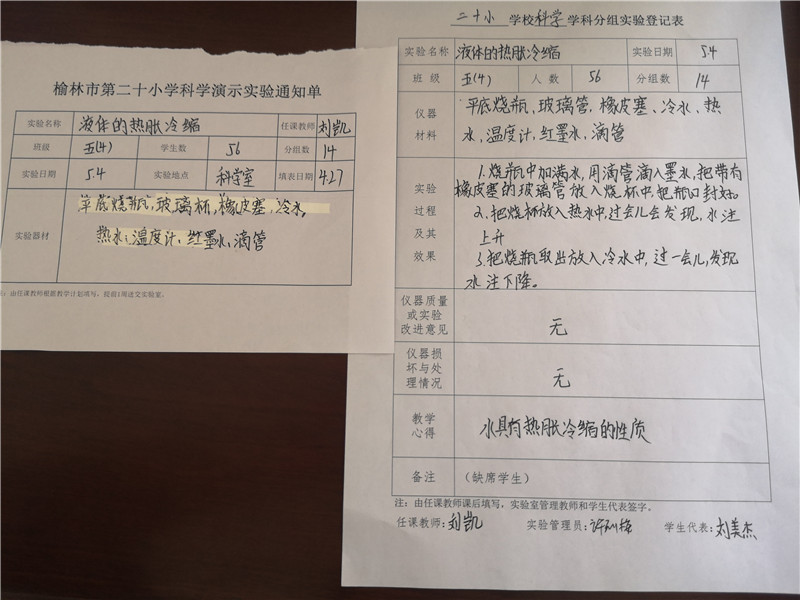 榆林市第二十小学科学演示实验通知单
实验名称 液体的热胀冷缩 任课教师 刘凯
班级 五(4) 学生数 56 分组数 14
实验日期 5.4 实验地点 科学室 填表日期 4.27
实验器材 平底烧瓶,玻璃杯,橡皮塞,冷水,
热水,温度计,红墨水,滴管
注:由任课教师根据教学计划填写,提前1周送交实验室。
二十小 学校科学学科分组实验登记表
实验名称 液体的热胀冷缩 实验日期 5.4
班级 五(4) 人数 56 分组数 14
仪器材料 平底烧瓶、玻璃管,橡皮塞、冷水、热
水,温度计,红墨水,滴管
实验过程及其效果 1.烧瓶中加满水,用滴管滴入墨水,把带有
橡皮塞的玻璃管放入烧杯中,把瓶口封好。
2、把烧杯放入热水中,过会儿会发现,水注
上升
3.把烧瓶取出放入冷水中,过一会儿,发现
水注下降。
仪器质量或实验改进意见 无
仪器损坏与处理情况 无
教学心得 水具有热胀冷缩的性质
备注 (缺席学生)
注:由任课教师课后填写,实验室管理教师和学生代表签字。
任课教师:刘凯 实验管理员: 学生代表:刘美杰